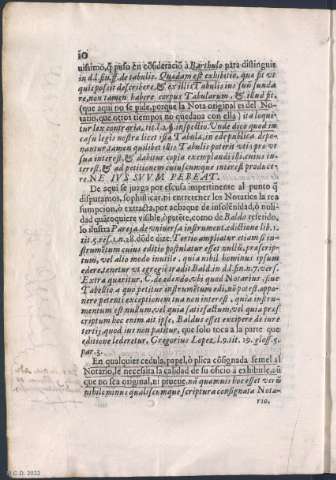 10
uissimo, q̃ puso en cõsideraciõ à Barthulo para distinguir
in d.l.fin.ff. de tabulis. Quædam est exhibitio, qua fit vt
quis possit describere, & ex illis Tabulis ius suũ funda
re, non tamen habere corpus Tabularum, & illud fit,
(que aqui no se pide, porque la Nota original es del No-
tario, que otros tiempos no quedava con ella) ita loqui-
tur lex contraria, sit l.
casu legis nostra licet ipsa Tabula, in ea publica depo-
nantur, tamen quilibet illis Tabulis poterit vti pro ve
sua interest, & dabitur copia exemplandi illi, cuius inte-
rest, & ad petitionem cuiuscumque interest produce-
re. NE IVS SVVM PEREAT.
De aqui se juzga por escusa impertinente al punto q̃
disputamos, sophisticar, ni entretener los Notarios la re
sumpcion, ò extracta, por achaque de insolenidad, ò nuli
dad qualoquiere visible, ò putẽte, como de Baldo referido,
lo ilustra Pareja de vniversa instrument. editione lib. 1.
tit. 5. res. 1. n. 28. dõde dize. Tertio ampliatur etiam si in-
strumentum cuius editio postulatur esset nullũ, prescrip-
tum, vel alio modo invtile, quia nihil hominus ipsum
edere, tenetur vt egregiè tradit Bald. in d.l. fin. n. 7. vers.
Extra quæritur. C. de edendo, vbi quod Notarius sive
Tabellio à quo petitur instrumẽtum edi, nõ potest appo-
nere petenti exceptionem tua non interest, quia instru-
mentum est nullum, vel quia satisfactum, vel quia pres-
criptum hoc enim ait ipse, Baldus esset excipere de iure
tertij, quod ius non patitur, que solo toca a la parte que
editione lederetur, Gregorius Lopez, l. 9. tit. 19. gloss. 5.
par. 3.
En qualquier cedula, papel, ò plica cõsignada semel al
Notario, le necesita la calidad de su oficio à exhibirle, aũ
que no sea original, ni
nihilominus qualiscumque scriptura consignata Nota-
C
rio,
C.D. 2022